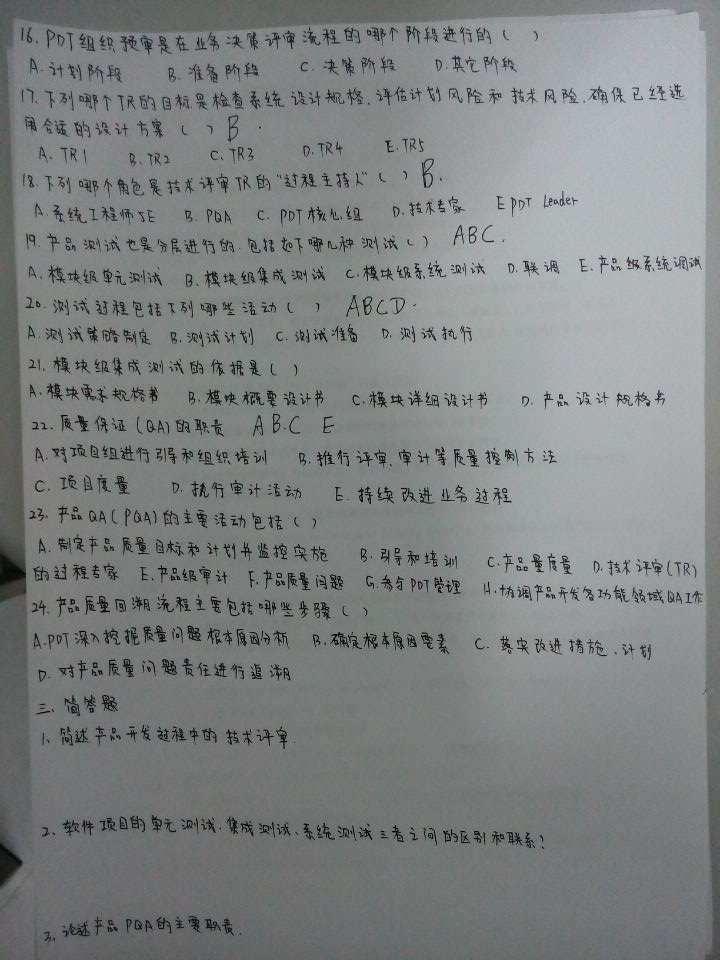 16. PDT组织预审是在业务决策评审流程的哪个阶段进行的（ ）
A.计划阶段 B.准备阶段 C.决策阶段 D.其它阶段
17.下列哪个TR的目标是检查系统设计规格、评估计划风险和技术风险,确保已经选
用合适的设计方案（ ）B.
A. TR1 B. TR2 C. TR3 D. TR4 E. TR5
18.下列哪个角色是技术评审TR的"过程主持人"（ ）B.
A.系统工程师SE B. PQA C. PDT核心组 D.技术专家 E PDT Leader
19.产品测试也是分层进行的.包括如下哪几种测试（ ） ABC.
A.模块级单元测试 B.模块级集成测试 C.模块级系统测试 D.联调 E.产品级系统调试
20.测试过程包括下列哪些活动（ ） ABCD.
A.测试策略制定 B.测试计划 C.测试准备 D.测试执行
21.模块级集成测试的依据是（ ）
A.模块需求规格书 B.模块概要设计书 C.模块详细设计书 D.产品设计规格书
22.质量保证（QA)的职责 AB.C E
A.对项目组进行引导和组织培训 B.推行评审、审计等质量控制方法
C. 项目度量 D.执行审计活动 E.持续改进业务过程
23.产品QA(PQA)的主要活动包括（ ）
A.制定产品质量目标和计划并监控实施 B.引导和培训 C.产品量度量 D.技术评审(TR)
的过程专家 E.产品级审计 F.产品质量问题 G.参与PDT管理 H.协调产品开发各功能领域QA工作
24.产品质量回溯流程主要包括哪些步骤（ ）
A.PDT深入挖掘质量问题根本原因分析 B.确定根本原因要素 C.落实改进措施、计划
D.对产品质量问题责任进行追溯
三、简答题
1、简述产品开发过程中的技术评审.
2、软件项目的单元测试、集成测试、系统测试三者之间的区别和联系?
3、论述产品PQA的主要职责.